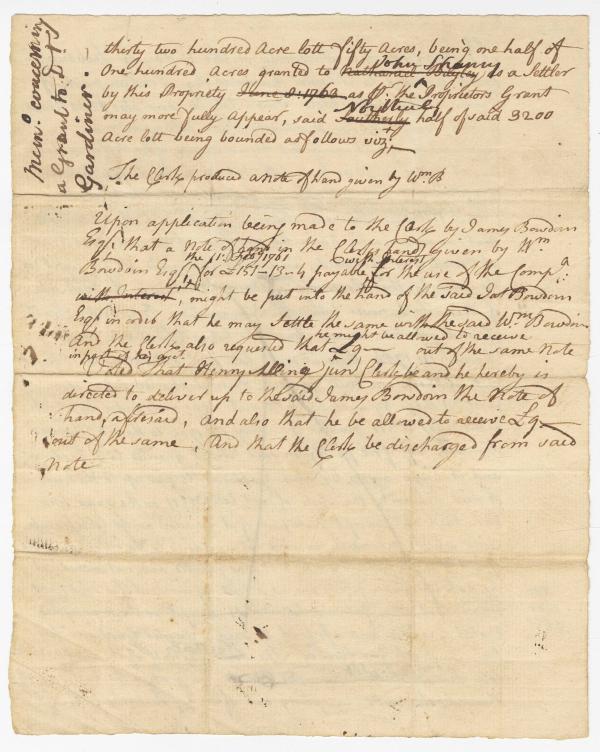 Mem.o concerning
a Grant to D.r
Gardiner.
thirty two hundred Acre lott fifty Acres, being one half of
One hundred Acres granted to John
Nathanael Bayley as a Settler
by this Propriety June 8: 1762 as by the Proprietors Grant
may more fully appear, said Northerly
Southerly half of said 3200
Acre lott being bounded as follows vizt
The Clerk produced a note of hand given by Wm B
Upon application being made to the Clerk by James Bowdoin
Esqr that a Note of hand in the Clerks hand given by Wm
the 1st Feby 1761 with Interest
Bowdoin Esqr for £151-13-4 payable for the use of the Compa:
with Interest, might be put into the hand of the said Jas Bowdoin
Esqr in order that he may settle the same with the said Wm Bowdoin
he might be allowed to receive
And the Clerk also requested that £9— out of the same Note
in part of his acct.
Voted That Henry Alline junr Clerk be and he hereby is
directed to deliver up to the said James Bowdoin the Note of
hand, aforesaid, and also that he be allowed to receive £9—
out of the same, And that the Clerk be discharged from said
Note